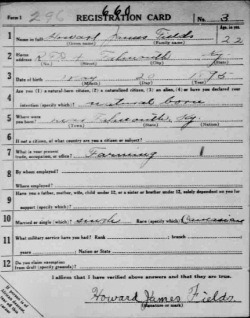 Form 1 296 660 REGISTRATION CARD No. 3
1 Name in full Howard James Fields Age, in yrs. 22
(Given name) (Family name)
2 Home address RFD 4 Falmouth Ky.
(No.) (Street) (City) (State)
3 Date of birth May 20 1895
(Month) (Day) (Year)
4 Are you (1) a natural-born citizen, (2) a naturalized citizen, (3) an alien, (4) or have you declared your
intention (specify which)? natural born
5 Where were you born? near Falmouth, Ky.
(Town) (State) (Nation)
6 If not a citizen, of what country are you a citizen or subject?
7 What is your present trade, occupation, or office? Farming
8 By whom employed?
Where employed?
9 Have you a father, mother, wife, child under 12, or a sister or brother under 12, solely dependent on you for
support (specify which)?
10 Married or single (which)? single Race (specify which)? Caucasian
11 What military service have you had? Rank ; branch
years ; Nation or State
12 Do you claim exemption from draft (specify grounds)?
I affirm that I have verified above answers and that they are true.
Howard James Fields
(Signature or mark)